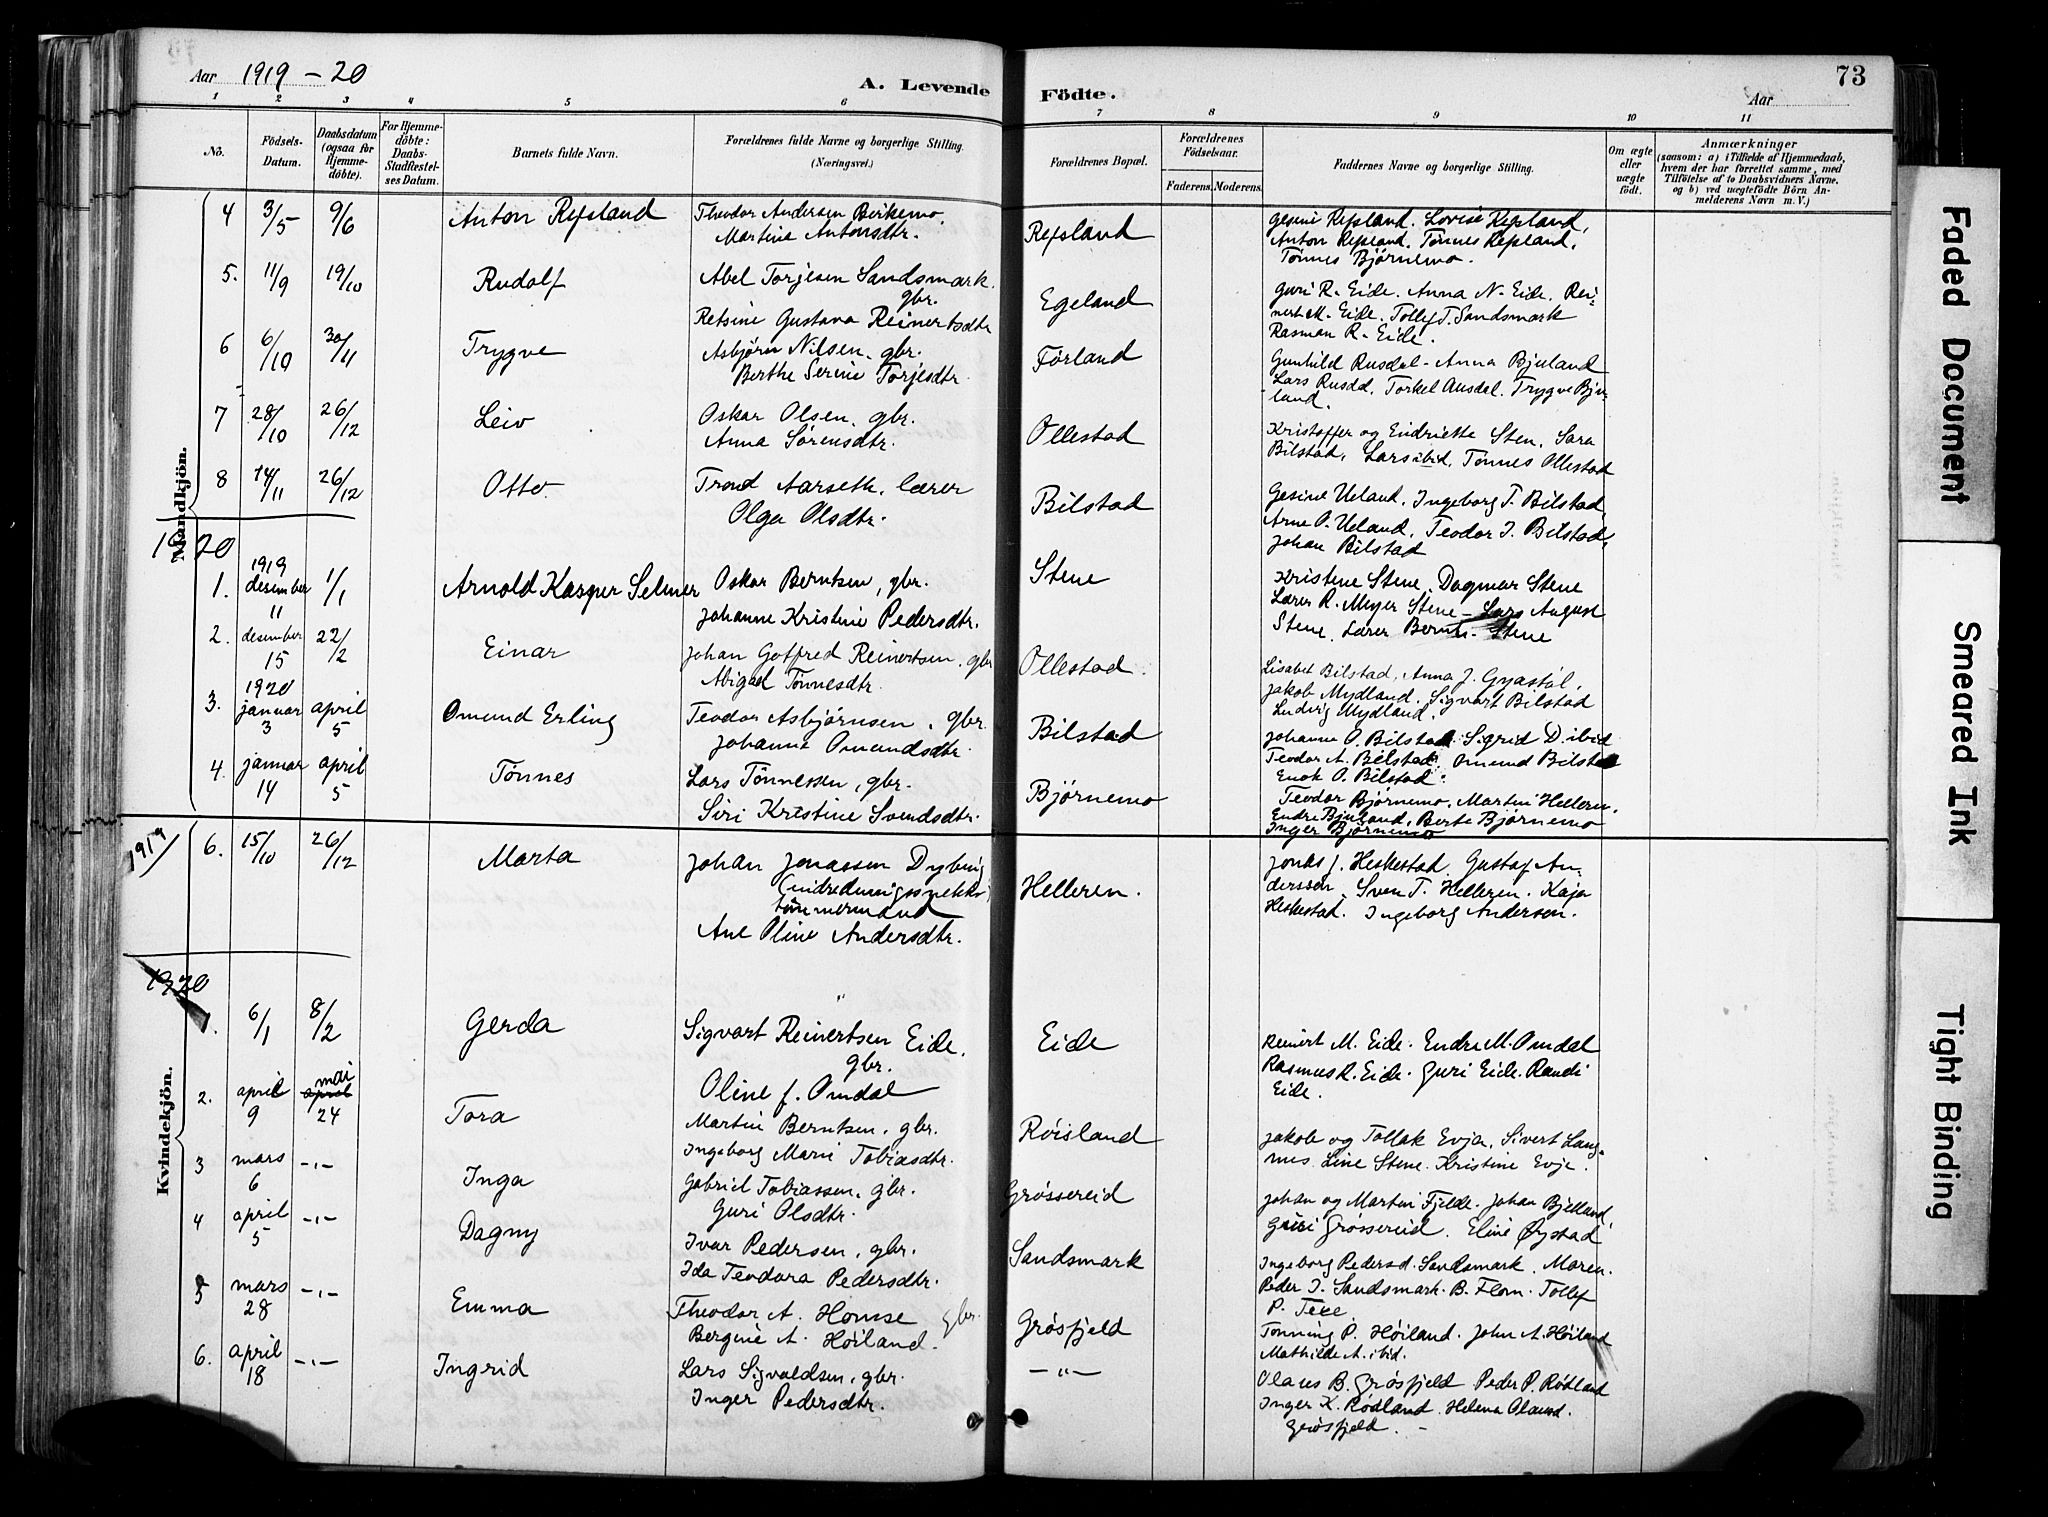 Aar 1919 - 20
A. Levende Födte.
73
Aar
1 2 3 4 5 6 7 8 9 10 11
No.
Födsels-Datum.
Daabsdatum (ogsaa for Hjemme-döbte).
For Hjemme-döbte: Daabs-Stadfæstel-ses Datum.
Barnets fulde Navn.
Forældrenes fulde Navne og borgerlige Stilling. (Næringsvei.)
Forældrenes Bopæl.
Forældrenes Födselsaar.
Faderens. Moderens.
Faddernes Navne og borgerlige Stilling.
Om ægte eller uægte födt.
Anmærkninger
(saasom: a) i Tilfælde af Hjemmedaab, hvem der har forrettet samme, med Tilföielse af to Daabsvidners Navne, og b) ved uægtefödte Börn An-melderens Navn m. V.)
Mandkjön.
4 3/5 9/6 Anton Refsland Theodor Andersen Birkemo.
Martine Antonsdtr. Refsland
Gesine Refsland. Lovise Refsland,
Anton Refsland. Tønnes Refsland.
Tønnes Bjørnemo.
5. 11/9 19/10 Rudolf Abel Torjesen Sandsmark.
gbr.
Retsine Gustava Reinertsdtr Egeland
Guri R. Eide. Anna N. Eide. Rei-
nert M. Eide. Tollef T. Sandsmark
Rasmus R. Eide.
6 6/10 30/11 Trygve Asbjørn Nilsen, gbr.
Berthe Serine Torjesdtr. Førland
Gunhild Rusdal - Anna Bjuland
Lars Rusdal, Torkel Ausdal. Trygve Bju-
land.
7 28/10 26/12 Leiv Oskar Olsen, gbr.
Anna Sørensdtr. Ollestad
Kristoffer og Endriette Sten. Sara
Bilstad, Lars ibid, Tønnes Ollestad
8 14/11 26/12 Otto. Trond Aarseth, lærer
Olga Olsdtr. Bilstad
Gesine Ueland, Ingeborg T. Bilstad,
Arne O. Ueland, Teodor I. Bilstad,
Johan Bilstad
1920
1. 1919 desember 11 1/1 Arnold Kasper Selmer Oskar Berntsen, gbr.
Johanne Kristine Pedersdtr. Stene
Kristine Stene. Dagmar Stene
Lærer R. Meyer Stene - Lars August
Stene. Lærer Bernt. Stene
2. desember 15 22/2 Einar Johan Gotfred Reinertsen, gbr
Abigael Tønnesdtr. Ollestad.
Lisabet Bilstad, Anna J. Gyastøl,
Jakob Mydland. Sigvart Bilstad
Ludvig Mydland.
3. 1920 januar 3 april 5 Omund Erling Teodor Asbjørnsen, gbr.
Johanne Omundsdtr. Bilstad
Johanne O. Bilstad. Sigrid D. ibid
Teodor A. Bilstad. Omund Bilstad
Enok O. Bilstad.
4. januar 14 april 5 Tønnes Lars Tønnessen, gbr.
Siri Kristine Svendsdtr. Bjørnemo
Teodor Bjørnemo, Martin Helleren,
Endre Bjuland, Berte Bjørnemo
Inger Bjørnemo
Kvindekjön.
1919
6. 15/10 26/12 Marta Johan Jonassen Dybing
tømmermand
Ane Oline Andersdtr. Helleren.
Jonas J. Heskestad. Gustaf An-
derssen, Sven T. Helleren. Kaja
Heskestad. Ingeborg Andersen.
1920
1. 6/1 8/2 Gerda Sigvart Reinertsen Eide.
gbr.
Oline f. Omdal Eide
Reinert M. Eide. Endre M. Omdal
Rasmus R. Eide. Guri Eide. Randi
Eide.
2. april 9 mai april 24 Tora Martin Berntsen, gbr.
Ingeborg Marie Tobiasdtr. Røisland
Jakob og Tollak Evja. Sivert Lang-
nes. Line Stene. Kristine Evje.
3 mars 6 -"- Inga Gabriel Tobiassen, gbr.
Guri Olsdtr. Grøssereid
Johan og Martin Fjelde. Johan Bjelland,
Guri Grøssereid. Eline Øystad
4 april 5 -"- Dagny Ivar Pedersen, gbr.
Ida Teodora Pedersdtr. Sandsmark
Ingeborg Pedersd. Sandsmark. Maren.
Peder I. Sandsmark. B. Flom. Tollef
P.
5 mars 28 -"- Emma Theodor A. Homse gbr.
Bergine A. Høiland. Grøsfjeld
Tønning P. Høiland. John A. Høiland
Mathilde A. ibid.
6. april 18 -"- Ingrid Lars Sigvaldsen, gbr.
Inger Pedersdtr. -"-
Olaus B. Grøsfjeld Peder P. Rødland
Inger K. Rødland. Helena Olausd.
Grøsfjeld. -
Faded Document
Smeared Ink
Tight Binding